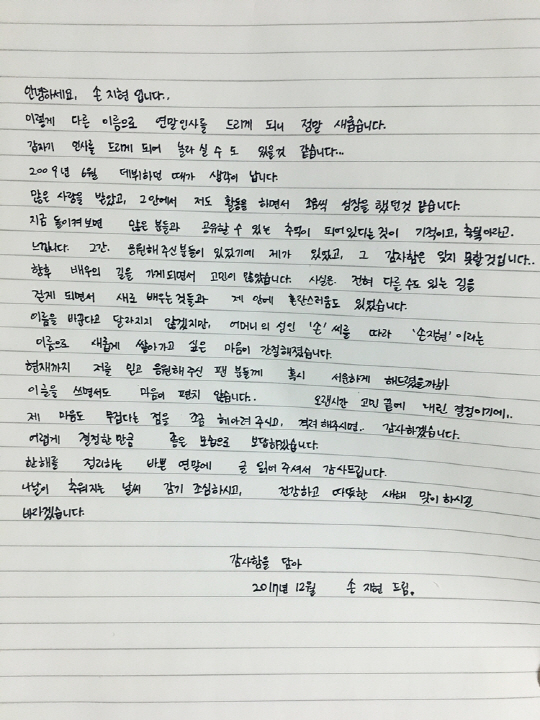 안녕하세요, 손 지현 입니다..
이렇게 다른 이름으로 연말인사를 드리게 되니 정말 새롭습니다.
갑자기 인사를 드리게 되어 놀라실 수도 있을것 같습니다...
2009년 6월 데뷔하던 때가 생각이 납니다.
많은 사랑을 받았고, 그안에서 저도 활동을 하면서 조금씩 성장을 했던것 같습니다.
지금 돌이켜보면 많은 분들과 공유할 수 있는 추억이 되어있다는것이 기적이고, 축복이라고.
느낍니다. 그간. 응원해주신분들이 있었기에 제가 있었고, 그 감사함은 잊지 못할것입니다..
향후 배우의 길을 가게되면서 고민이 많았습니다. 사실은. 전혀 다를 수도 있는 길을
걷게 되면서 새로 배우는 것들과 제 안에 혼란스러움도 있었습니다.
이름을 바꾼다고 달라지지 않겠지만, 어머니의 성인 '손' 씨를 따라 '손지현' 이라는
이름으로 새롭게 살아가고 싶은 마음이 간절해졌습니다.
현재까지 저를 믿고 응원해주신 팬 분들께 혹시 서운하게 해드렸을까봐
이글을 쓰면서도 마음이 편치 않습니다.. 오랜시간 고민 끝에 내린 결정이기에..
제 마음도 무겁다는 점을 조금 헤아려 주시고, 격려 해주시면.. 감사하겠습니다.
어렵게 결정한 만큼 좋은 모습으로 보답하겠습니다.
한해를 정리하는 바쁜 연말에 글 읽어 주셔서 감사드립니다.
나날이 추워지는 날씨 감기 조심하시고, 건강하고 따뜻한 새해 맞이하시길
바라겠습니다.
감사함을 담아
2017년 12월 손 지현 드림.